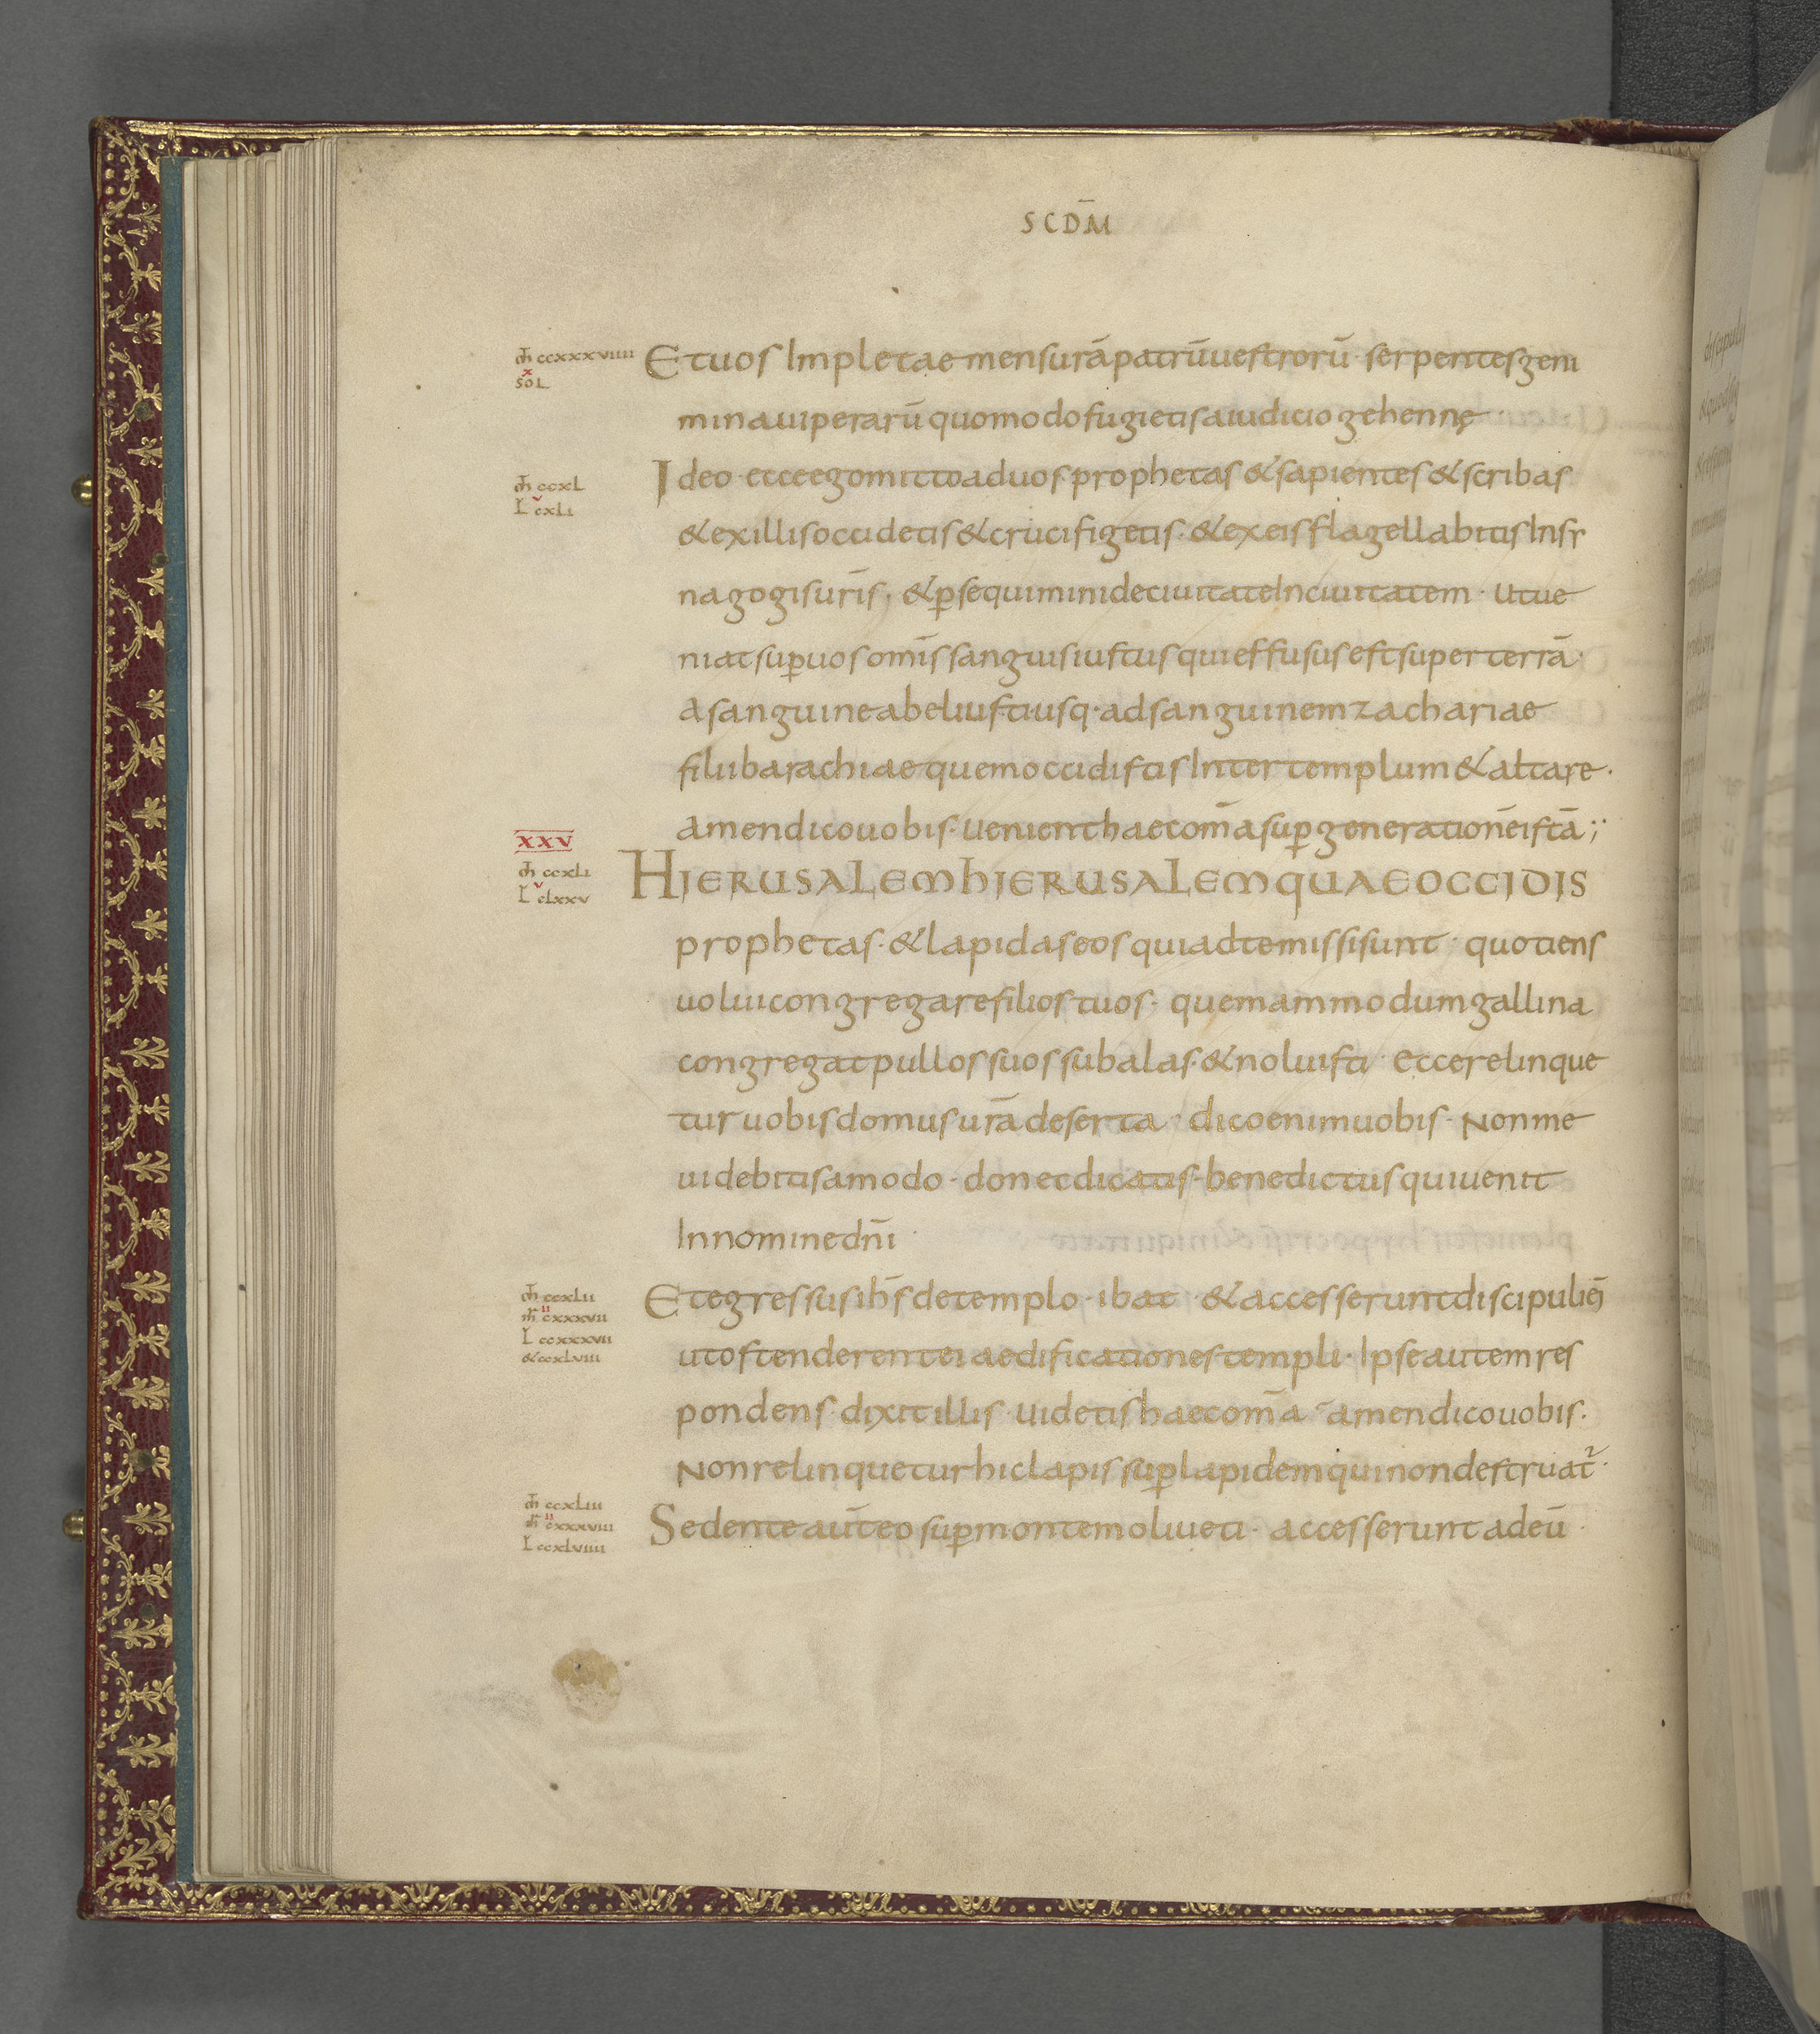 SCD̄M
m̄ ccxxxviiii
x
SOL
Et uos Impletae mensurā patrū uestrorū · serpentes geni
mina uiperarū quomodo fugietis a iudicio gehennę ·
m̄ ccxL
v
L cxLi
Ideo · ecce ego mitto ad uos prophetas & sapientes & scribas
& ex illis occidetis & crucifigetis · & ex eis flagellabitis In sy
nagogis ur̄is, & p̱sequimini de ciuitate In ciuitatem · Ut ue
niat sup̱ uos om̄is sanguis iustus qui effusus est super terrā ·
A sanguine abel iusti usq· ad sanguinem zachariae
filii barachiae quem occidistis Inter templum & altare ·
amen dico uobis · uenient haec om̄a sup̱ generationē istā ;·
XXV
m̄ ccxLi
v
L cLxxv
HIERUSALEM hIERUSALEM QUAE OCCIDIS
prophetas · & lapidas eos qui ad te missi sunt · quotiens
uolui congregare filios tuos · quemammodum gallina
congregat pullos suos sub alas · & noluisti · ecce relinque
tur uobis domus ur̄a deserta · dico enim uobis · Non me
uidebitis amodo · donec dicatis · benedictus qui uenit
In nomine dn̄i ·
m̄ ccxLii
ii
m̄r cxxxvii
L ccxxxvii
& ccxLviii
Et egressus ih̄s de templo · ibat · & accesserunt discipuli eī
ut ostenderent ei aedificationes templi · Ipse autem res
pondens dixit illis · uidetis haec om̄a · amen dico uobis ·
Non relinquetur hic lapis sup̱ lapidem qui non destruat̄ ·
m̄ ccxLiii
ii
m̄r cxxxviii
L ccxLviiii
Sedente aut̄ eo sup̱ montem oliueti · accesserunt ad eū ·